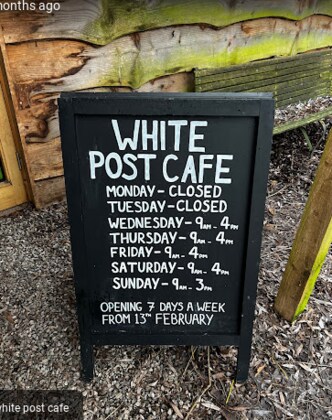 months ago
WHITE
POST CAFE
MONDAY - CLOSED
TUESDAY - CLOSED
WEDNESDAY - 9AM - 4PM
THURSDAY - 9AM - 4PM
FRIDAY - 9AM - 4PM
SATURDAY - 9AM - 4PM
SUNDAY - 9AM - 3PM
OPENING 7 DAYS A WEEK
FROM 13TH FEBRUARY
white post cafe